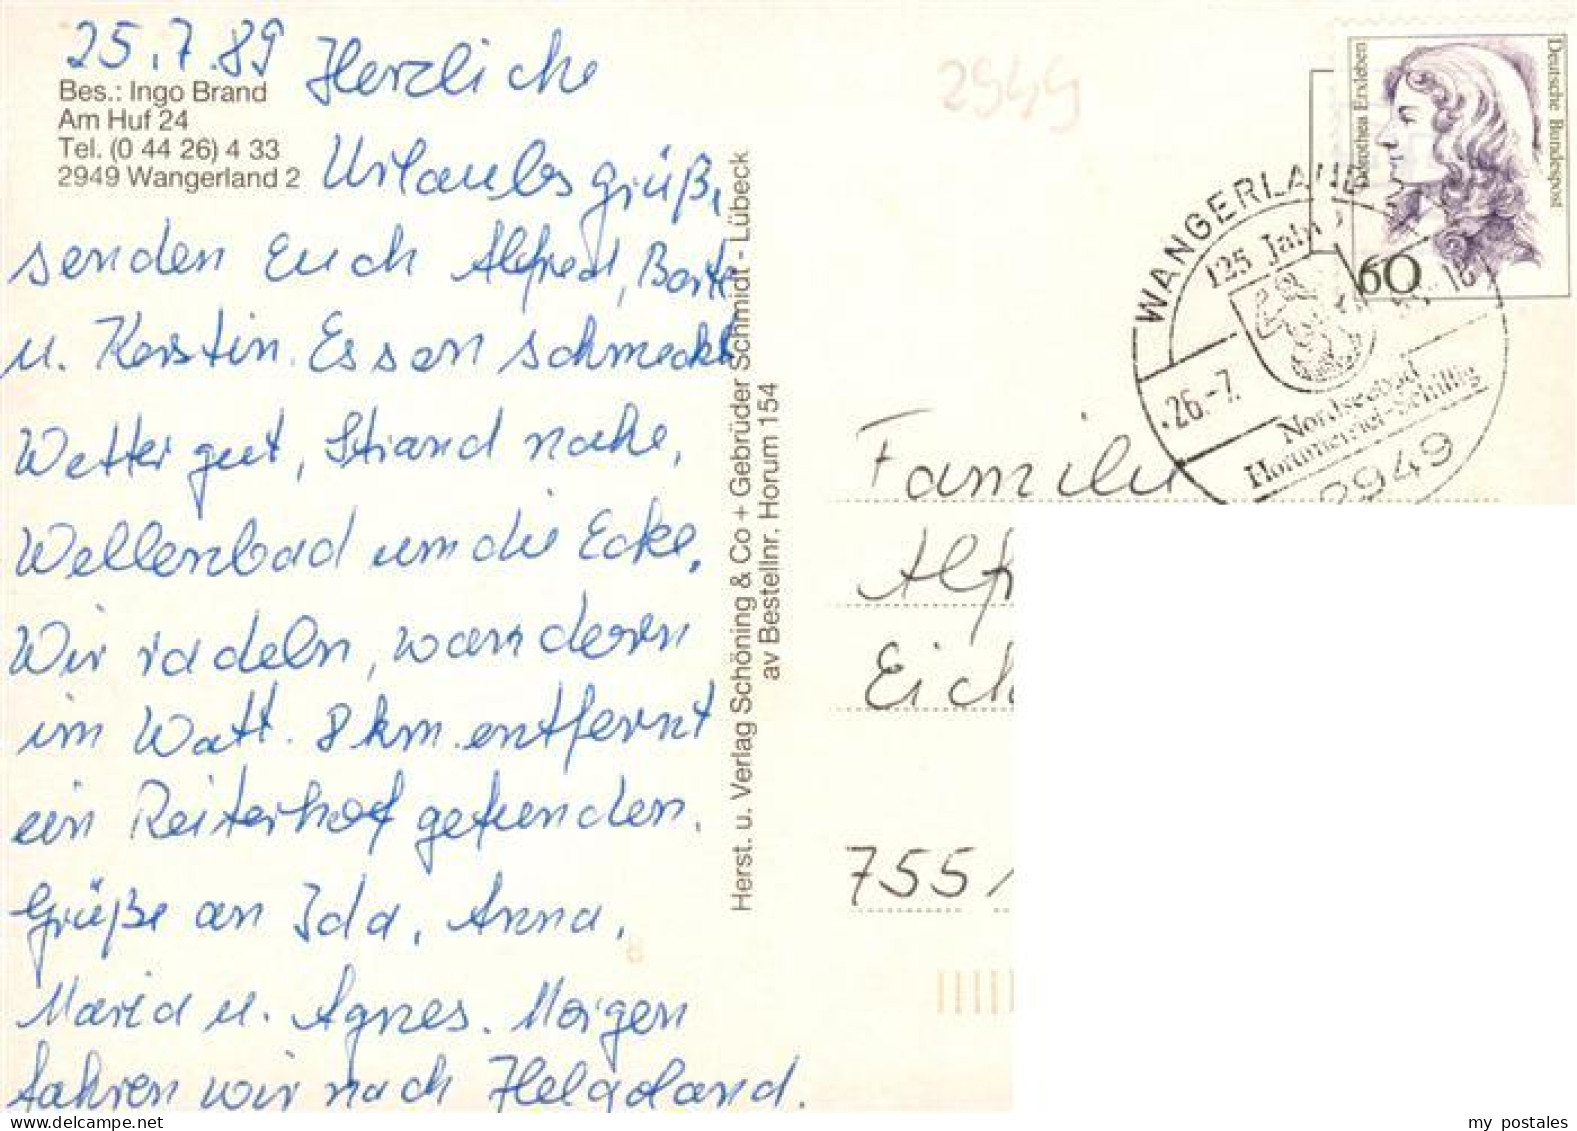 25.7.89
Bes.: Ingo Brand
Am Huf 24
Tel. (0 44 26) 4 33
2949 Wangerland 2
Herzliche
Urlaubsgrüße,
senden Euch Alfred,
u. Kerstin. Essen schmeckt
Wetter gut, Strand nahe,
Wellenbad um die Ecke.
Wir radeln, wandern
im Watt. 8 km entfernt
ein Reiterhof gefunden.
Grüße an Ida, Anna,
Maria u. Agnes. Morgen
fahren wir nach Helgoland.
Herst. u. Verlag Schöning & Co + Gebrüder Schmidt - Lübeck
av Bestellnr. Horum 154
2949
Dorothea Erxleben
Deutsche Bundespost
60
WANGERLAND
125 Jahre
26.-7.
Nordseebad
Horumersiel-Schillig
2949
Familie
Alfr
Eich
755
my postales